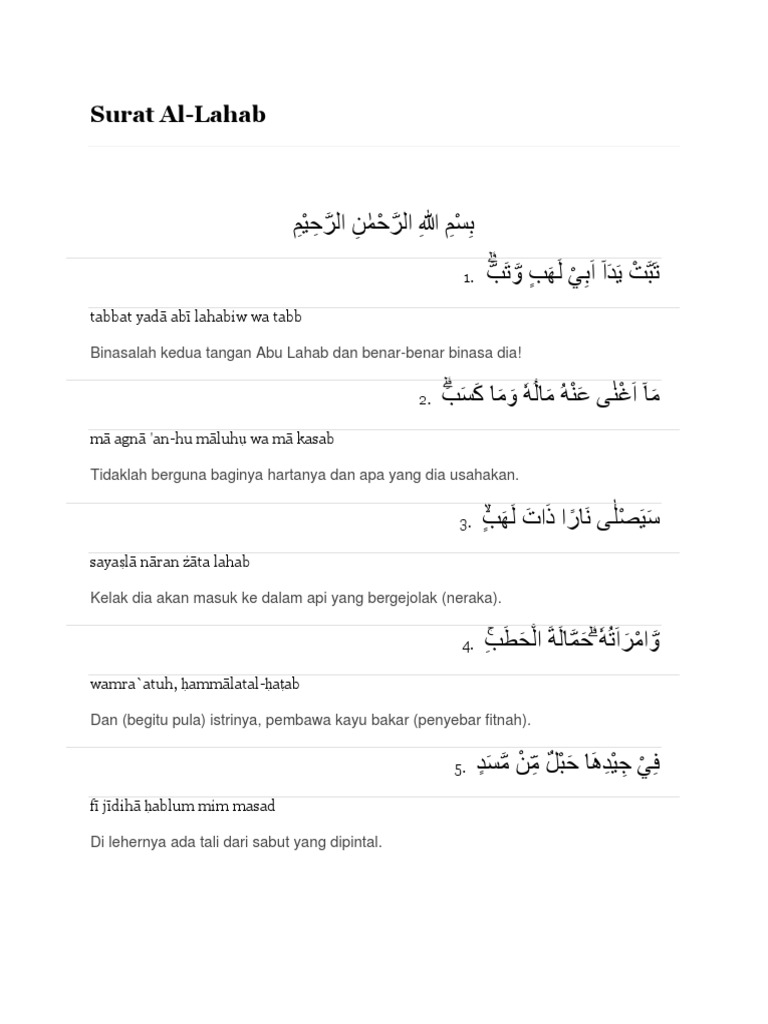 Surat Al-Lahab
بِسْمِ اللهِ الرَّحْمٰنِ الرَّحِيْمِ
1. تَبَّتْ يَدَآ اَبِيْ لَهَبٍ وَّتَبَّۗ
tabbat yadā abī lahabiw wa tabb
Binasalah kedua tangan Abu Lahab dan benar-benar binasa dia!
2. مَآ اَغْنٰى عَنْهُ مَالُهٗ وَمَا كَسَبَۗ
mā agnā 'an-hu māluhụ wa mā kasab
Tidaklah berguna baginya hartanya dan apa yang dia usahakan.
3. سَيَصْلٰى نَارًا ذَاتَ لَهَبٍۙ
sayaṣlā nāran żāta lahab
Kelak dia akan masuk ke dalam api yang bergejolak (neraka).
4. وَّامْرَاَتُهٗ ۗحَمَّالَةَ الْحَطَبِۚ
wamra`atuh, ḥammālatal-ḥaṭab
Dan (begitu pula) istrinya, pembawa kayu bakar (penyebar fitnah).
5. فِيْ جِيْدِهَا حَبْلٌ مِّنْ مَّسَدٍ
fī jīdihā ḥablum mim masad
Di lehernya ada tali dari sabut yang dipintal.